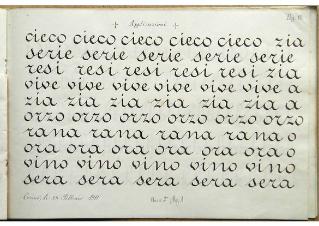 Applicazioni
cieco cieco cieco cieco cieco zia
serie serie serie serie serie
resi resi resi resi resi zia
vive vive vive vive vive vive a
zia zia zia zia zia zia a
orzo orzo orzo orzo orzo orzo
rana rana rana rana rana o
ora ora ora ora ora ora o
vino vino vino vino vino vino
sera sera sera sera sera